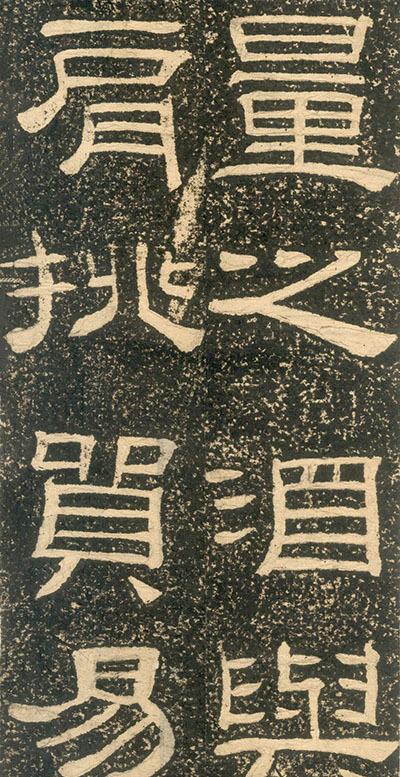 量之酒與
肩挑貿易